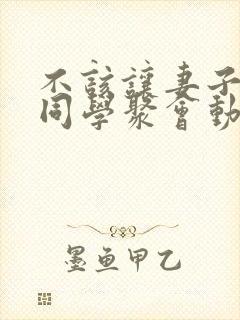 不該讓妻子
同學聚會動
墨鱼甲乙